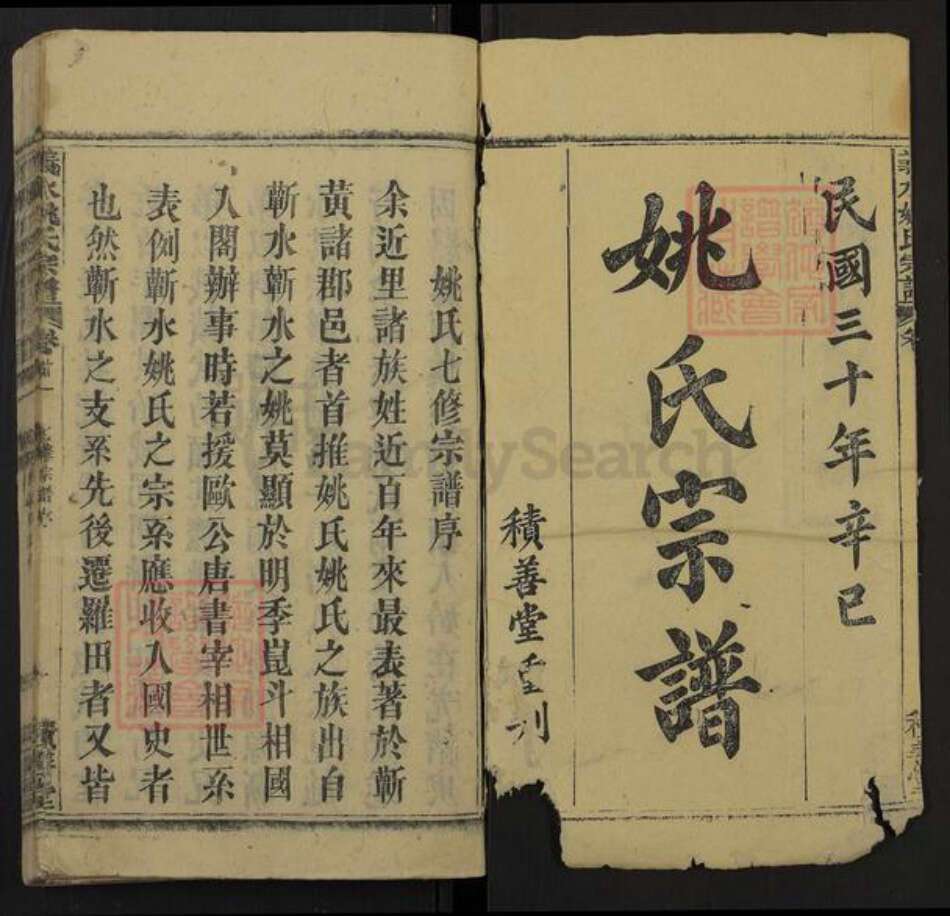 民國三十年辛巳
姚氏宗譜
積善堂
刋
姚氏七修宗譜序
余近里諸族姓近百年來最表著於蘄
黃諸郡邑者首推姚氏姚氏之族出自
蘄水蘄水之姚莫顯於明季崑斗相國
入閣辦事時若援歐公唐書宰相世系
表例蘄水姚氏之宗系應收入國史者
也然蘄水之支系先後遷羅田者又皆
水姚氏宗譜
FamilySearch